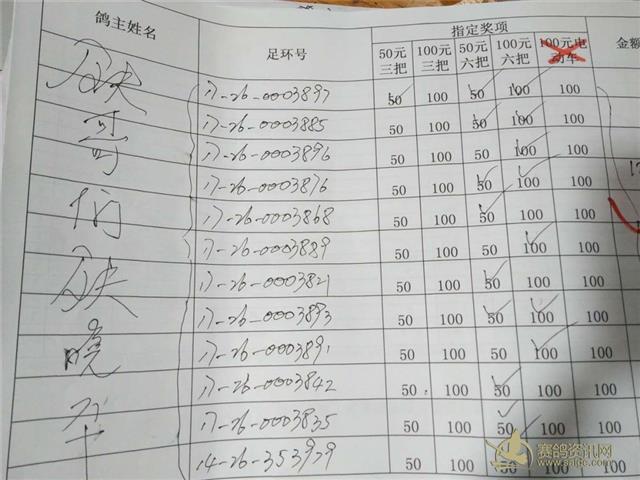 鸽主姓名 足环号 指定奖项 金额
50元三把 100元三把 50元六把 100元六把 100元电动车
17-26-0003897 50 100 50 100 100
17-26-0003885 50 100 50 100 100
17-26-0003896 50 100 50 100 100
17-26-0003876 50 100 50 100 100
17-26-0003868 50 100 50 100 100
17-26-0003889 50 100 50 100 100
17-26-0003821 50 100 50 100 100
17-26-0003893 50 100 50 100 100
17-26-0003891 50 100 50 100 100
17-26-0003842 50 100 50 100 100
17-26-0003835 50 100 50 100 100
14-26-353929 50 100 50 100
哥
们
晓
军
赛鸽资讯网